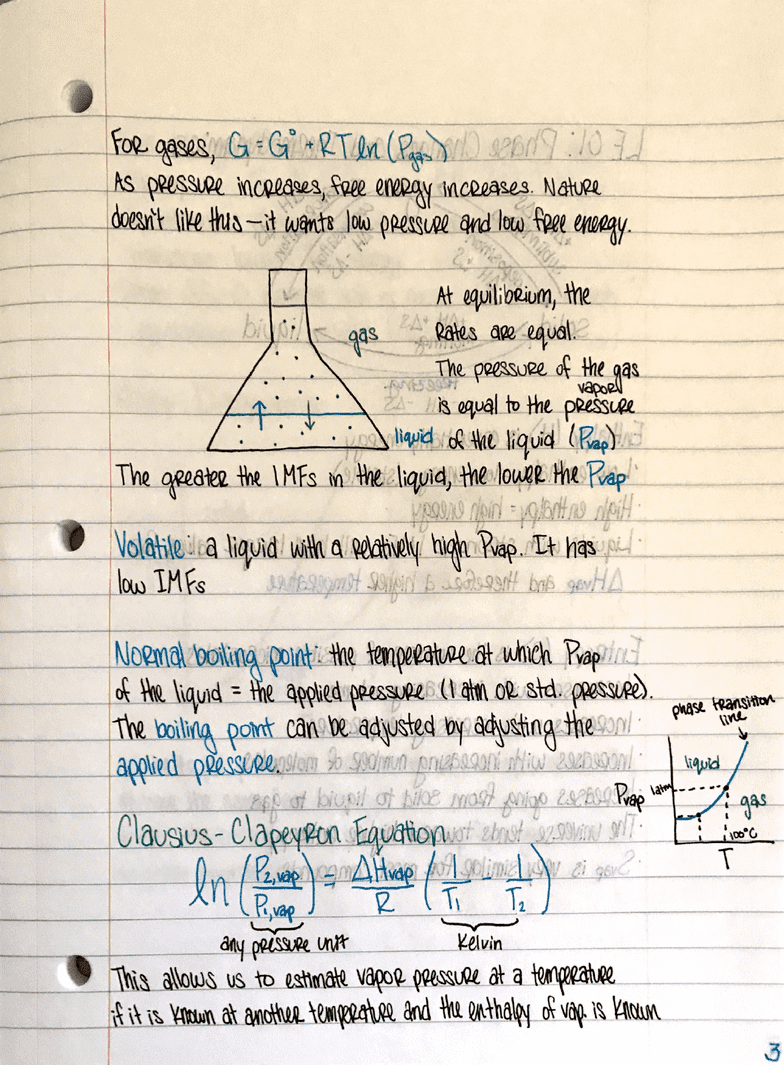 For gases, G = G° + RT ln (Pgas)
As pressure increases, free energy increases. Nature
doesn't like this — it wants low pressure and low free energy.
At equilibrium, the
rates are equal.
gas
The pressure of the gas
vapor
is equal to the pressure
liquid of the liquid (Pvap)
The greater the IMFs in the liquid, the lower the Pvap
Volatile: a liquid with a relatively high Pvap. It has
low IMFs
Normal boiling point: the temperature at which Pvap
of the liquid = the applied pressure (1 atm or std. pressure).
The boiling point can be adjusted by adjusting the
applied pressure.
phase transition
line
liquid
Pvap
1atm
gas
100°C
T
Clausius-Clapeyron Equation
ln (P2,vap / P1,vap) = ΔHvap / R (1/T1 - 1/T2)
any pressure unit
Kelvin
This allows us to estimate vapor pressure at a temperature
if it is known at another temperature and the enthalpy of vap. is known
3